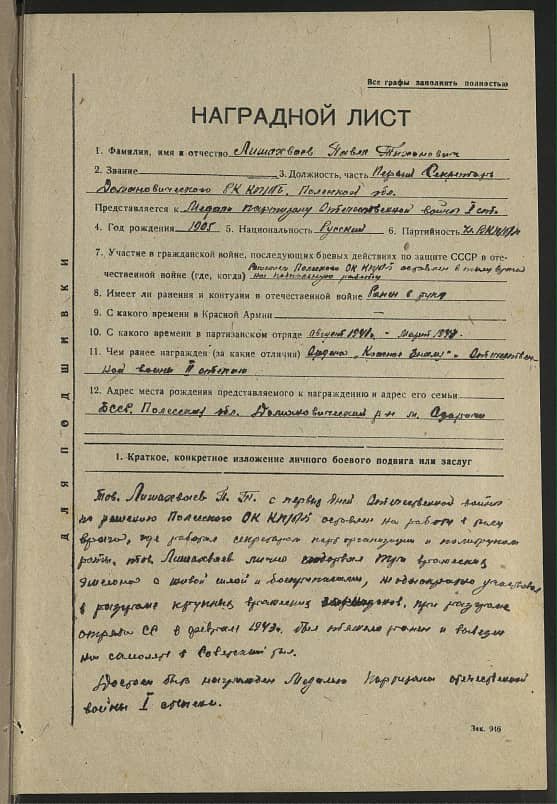 Все графы заполнить полностью
НАГРАДНОЙ ЛИСТ
1. Фамилия, имя и отчество Лишахваев Павел Тихонович
2. Звание 3. Должность, часть Первый Секретарь
Домановического РК КП/б/Б, Полесской обл.
Представляется к Медали партизану Отечественной войны I ст.
4. Год рождения 1905 5. Национальность Русский 6. Партийность Чл. ВКП/б/
7. Участие в гражданской войне, последующих боевых действиях по защите СССР в оте-
чественной войне (где, когда) Решением Полесского ОК КП/б/Б оставлен в тылу врага
на подпольную работу
8. Имеет ли ранения и контузии в отечественной войне Ранен в
9. С какого времени в Красной Армии
10. С какого времени в партизанском отряде август 1941г. - март 1943г.
11. Чем ранее награжден (за какие отличия) Ордена „Красное Знамя" и Отечествен-
ной войны II степени
12. Адрес места рождения представляемого к награждению и адрес его семьи
БССР, Полесская обл. Домановический р-н м.
1. Краткое, конкретное изложение личного боевого подвига или заслуг
Тов. Лишахваев П. Т. с первых дней Отечественной войны
по решению Полесского ОК КП/б/Б оставлен на работе в тылу
врага, где работал секретарем парторганизации и политруком
роты. тов. Лишахваев лично подорвал три вражеских
эшелона с живой силой и боеприпасами, неоднократно участвовал
в разгроме крупных вражеских гарнизонов. при разгроме
отряда СС в феврале 1943г. был тяжело ранен и вывезен
на самолете в Советский тыл.
Достоин быть награжден Медалью Партизана отечественной
войны I степени.
Зак. 946
ДЛЯ ПОДШИВКИ